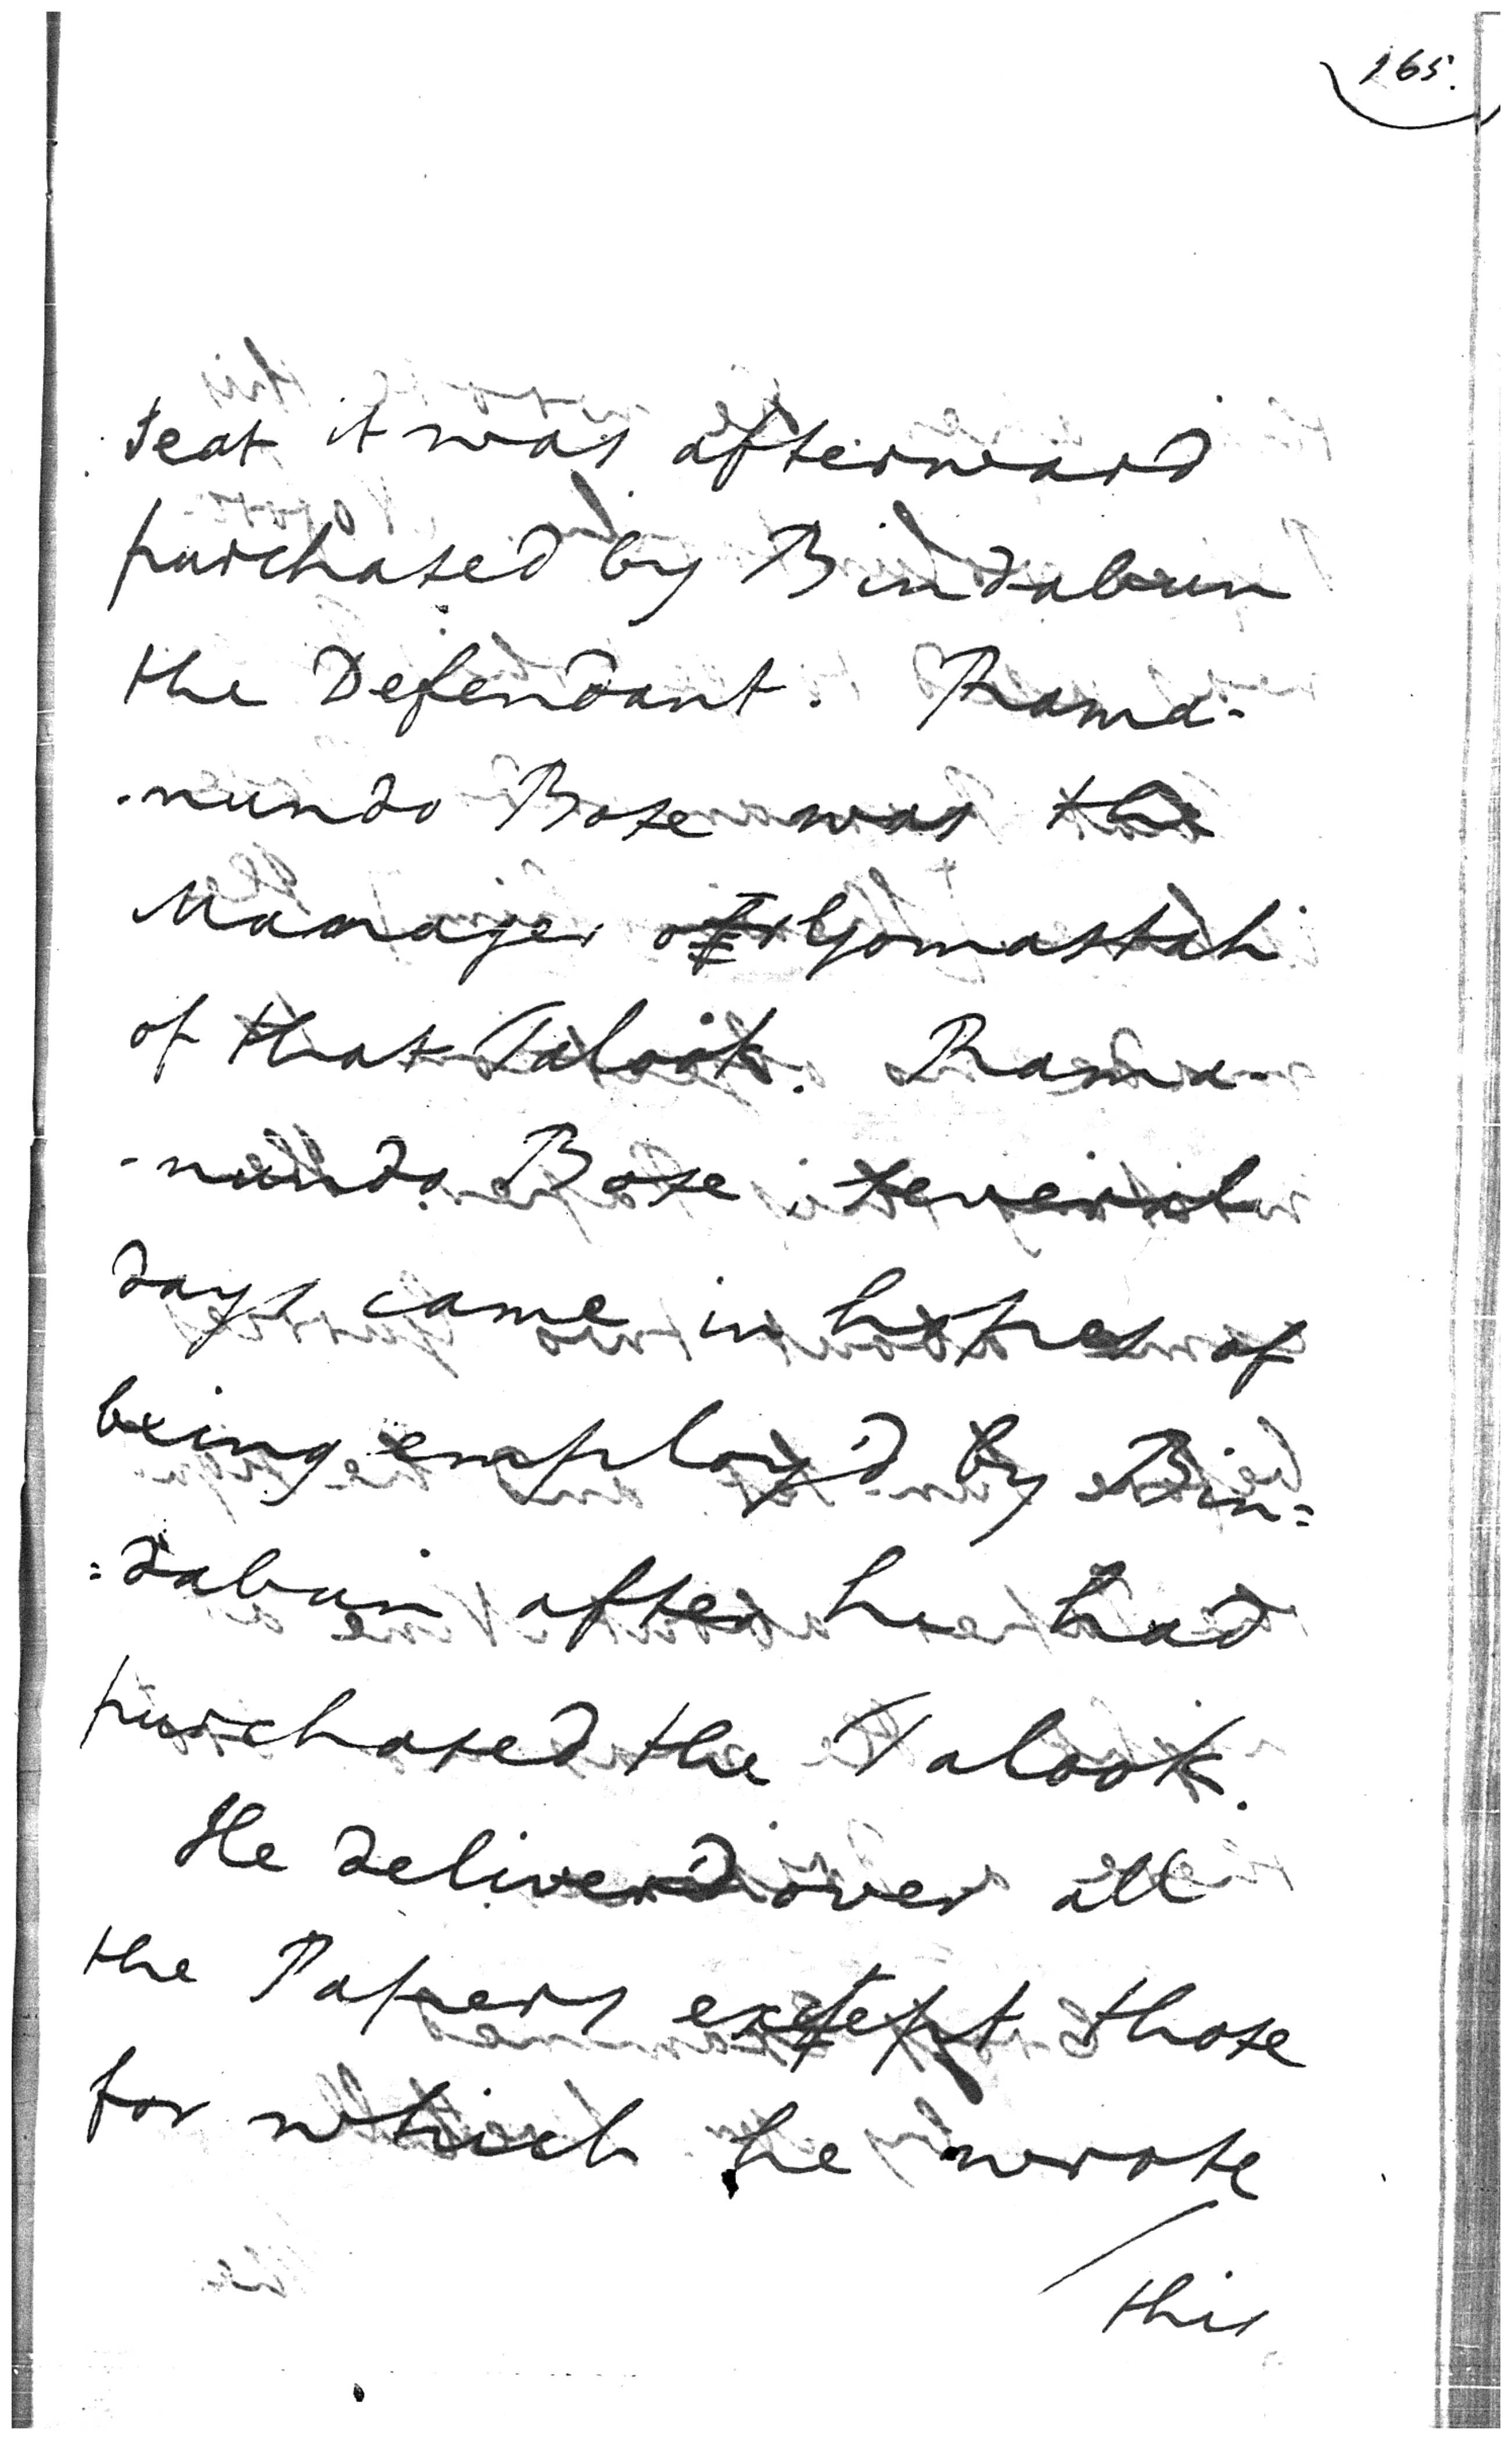 165.
seat it was afterward
purchased by Bindabun
the Defendant. Rama-
-nundo Bose was the
Manager or Gomastah
of that Talook. Rama-
-nundo Bose several
days came in hopes of
being employ'd by Bin=
=dabun after he had
purchased the Talook.
He deliverd over all
the Papers except those
for which he wrote
this